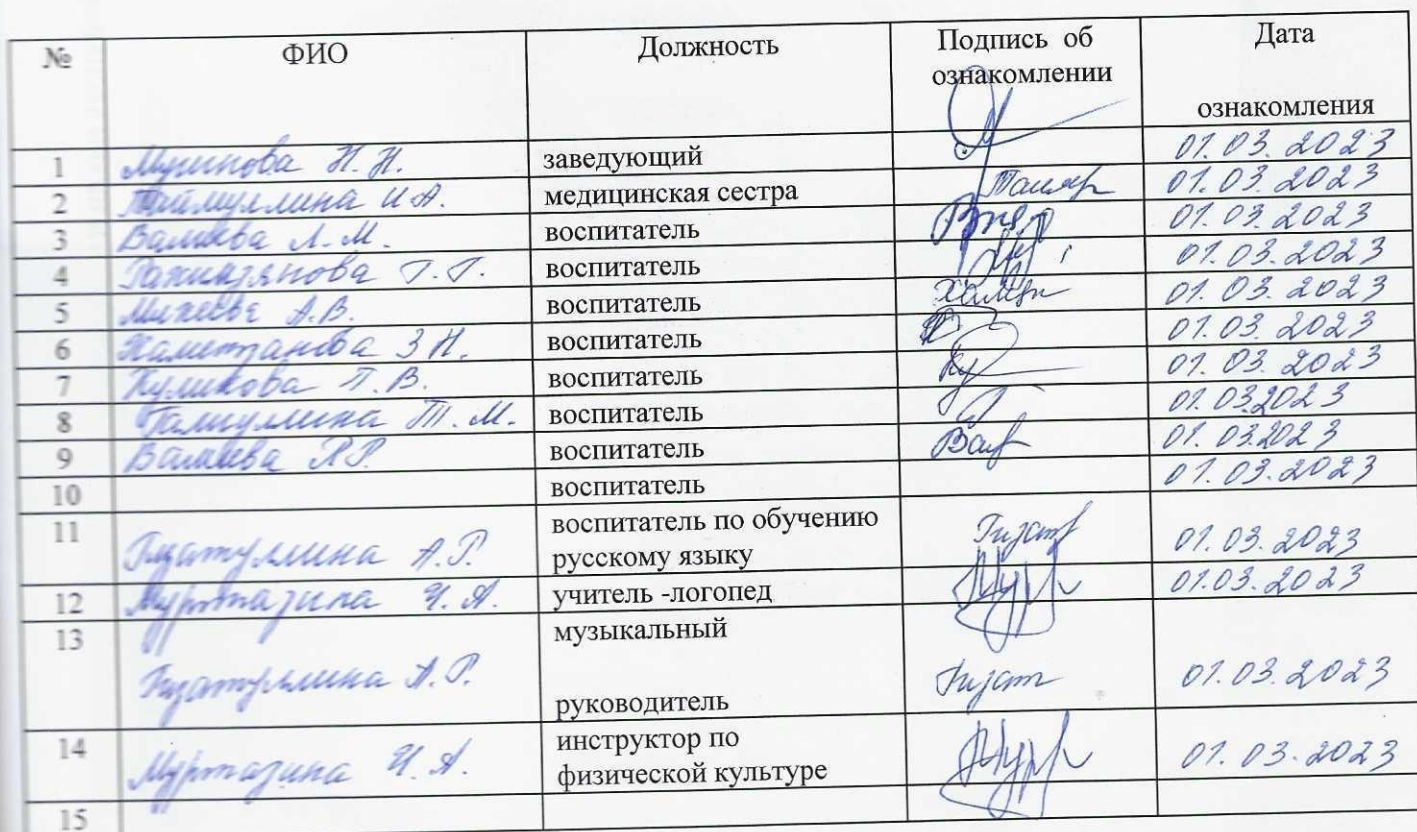 № ФИО Должность Подпись об Дата
ознакомлении
ознакомления
1 Н. Н. заведующий 01.03.2023
2 Таймуллина И.А. медицинская сестра 01.03.2023
3 Валиева Л.М. воспитатель 01.03.2023
4 Рахимзянова Г.Г. воспитатель 01.03.2023
5 Михеева А.В. воспитатель 01.03.2023
6 Хаметзанова З Н. воспитатель 01.03.2023
7 Куликова Т.В. воспитатель 01.03.2023
8 Галиуллина Т.М. воспитатель 01.03.2023
9 Валиева Р.Р. воспитатель Вал 01.03.2023
10 воспитатель 01.03.2023
11 воспитатель по обучению
Гизатуллина А.Р. русскому языку Гизат 01.03.2023
12 Муртазина Ч.А. учитель -логопед 01.03.2023
13 музыкальный
Гизатуллина А.Р. руководитель Гизат 01.03.2023
14 инструктор по
Муртазина Ч.А. физической культуре 01.03.2023
15